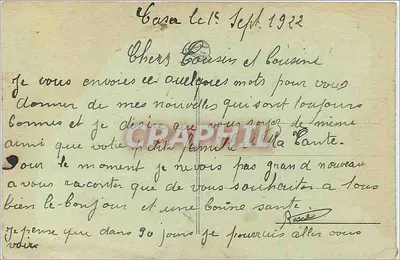 Casa le 1e Sept. 1922
Chers Cousin et Cousine
Je vous envoies ce quelques mots pour vous
donner de mes nouvelles qui sont toujours
bonnes et je désir que vous soyer de même
ainsi que votre petite famille la Tante.
Pour le moment je ne vois pas grand nouveau
a vous raconter que de vous souhaiter a tous
bien le bonjour et une bonne santé.
Je pense que dans 90 jours je pourrais aller vous
voir
CPARAMA